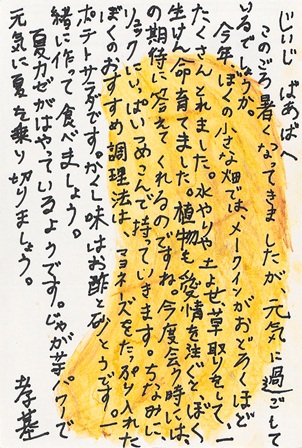 じいじ ばあばへ
このごろ暑くなってきましたが元気に過ごして
いるでしょうか。
今年、ぼくの小さな畑では、メークインがおどろくほど
たくさんとれました。水やりや土よせ草取りをして、一
生けん命育てました。植物も愛情を注ぐと、ぼく
の期待に答えてくれるのですね。今度会う時には、
リュックにいっぱいつめこんで持っていきます。ちなみに、
ぼくのおすすめ調理法は マヨネーズをたっぷり入れた
ポテトサラダです。かくし味はお酢と砂とうです。一
緒に作って食べましょう。
夏カゼがはやっているようです。じゃが芋パワーで
元気に夏を乗り切りましょう。
孝基